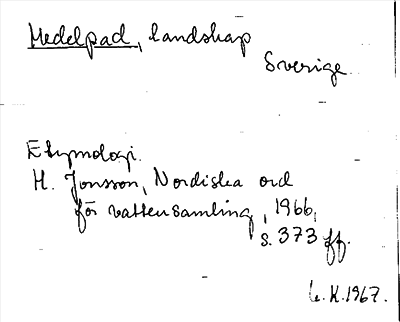 Medelpad, landskap
Sverige
Etymologi.
H. Jonsson, Nordiska ord
för vattensamling, 1966,
s. 373 ff.
K. 1967.